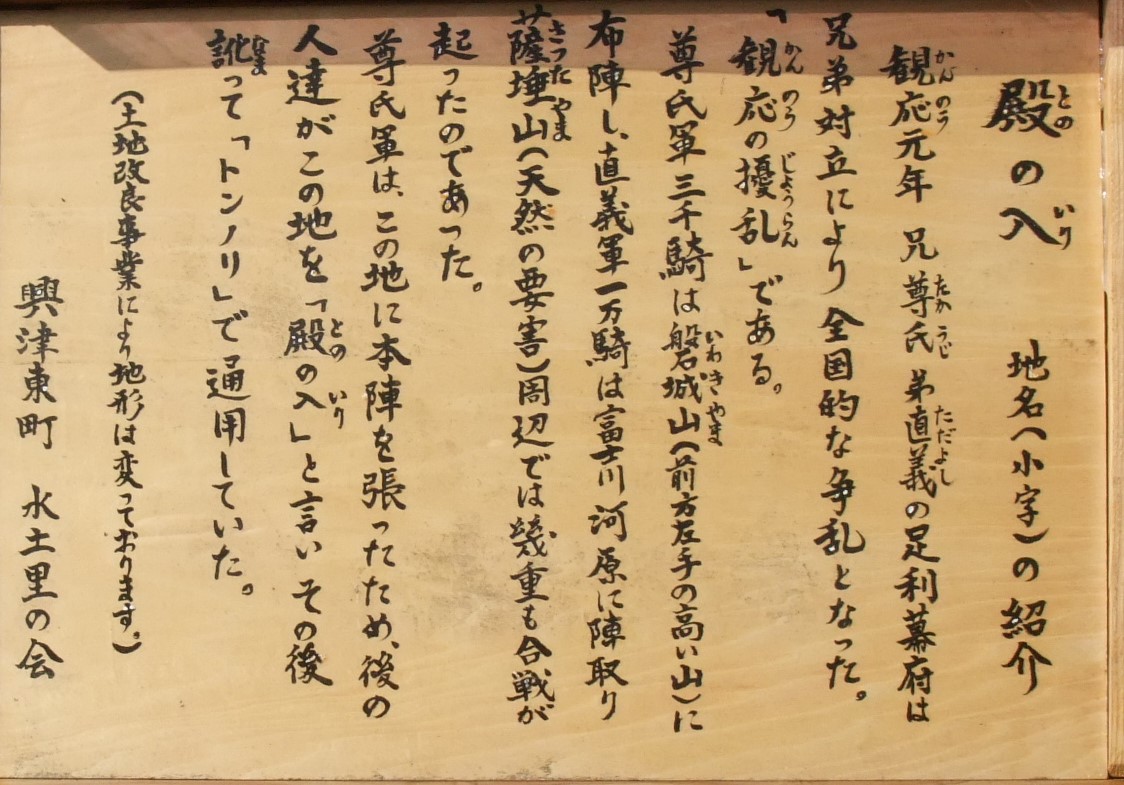 殿の入 地名(小字)の紹介
との いり
観応元年 兄尊氏 弟直義の足利幕府は
かんのう たかうじ ただよし
兄弟対立により全国的な争乱となった。
「観応の擾乱」である。
かんのう じょうらん
尊氏軍三千騎は磐城山(前方左手の高い山)に
いわきやま
布陣し、直義軍一万騎は富士川河原に陣取り
薩埵山(天然の要害)周辺では幾重も合戦が
さったやま
起ったのであった。
尊氏軍は、この地に本陣を張ったため、後の
人達がこの地を「殿の入」と言いその後
との いり
訛って「トンノリ」で通用していた。
なま
(土地改良事業により地形は変っております。)
興津東町 水土里の会